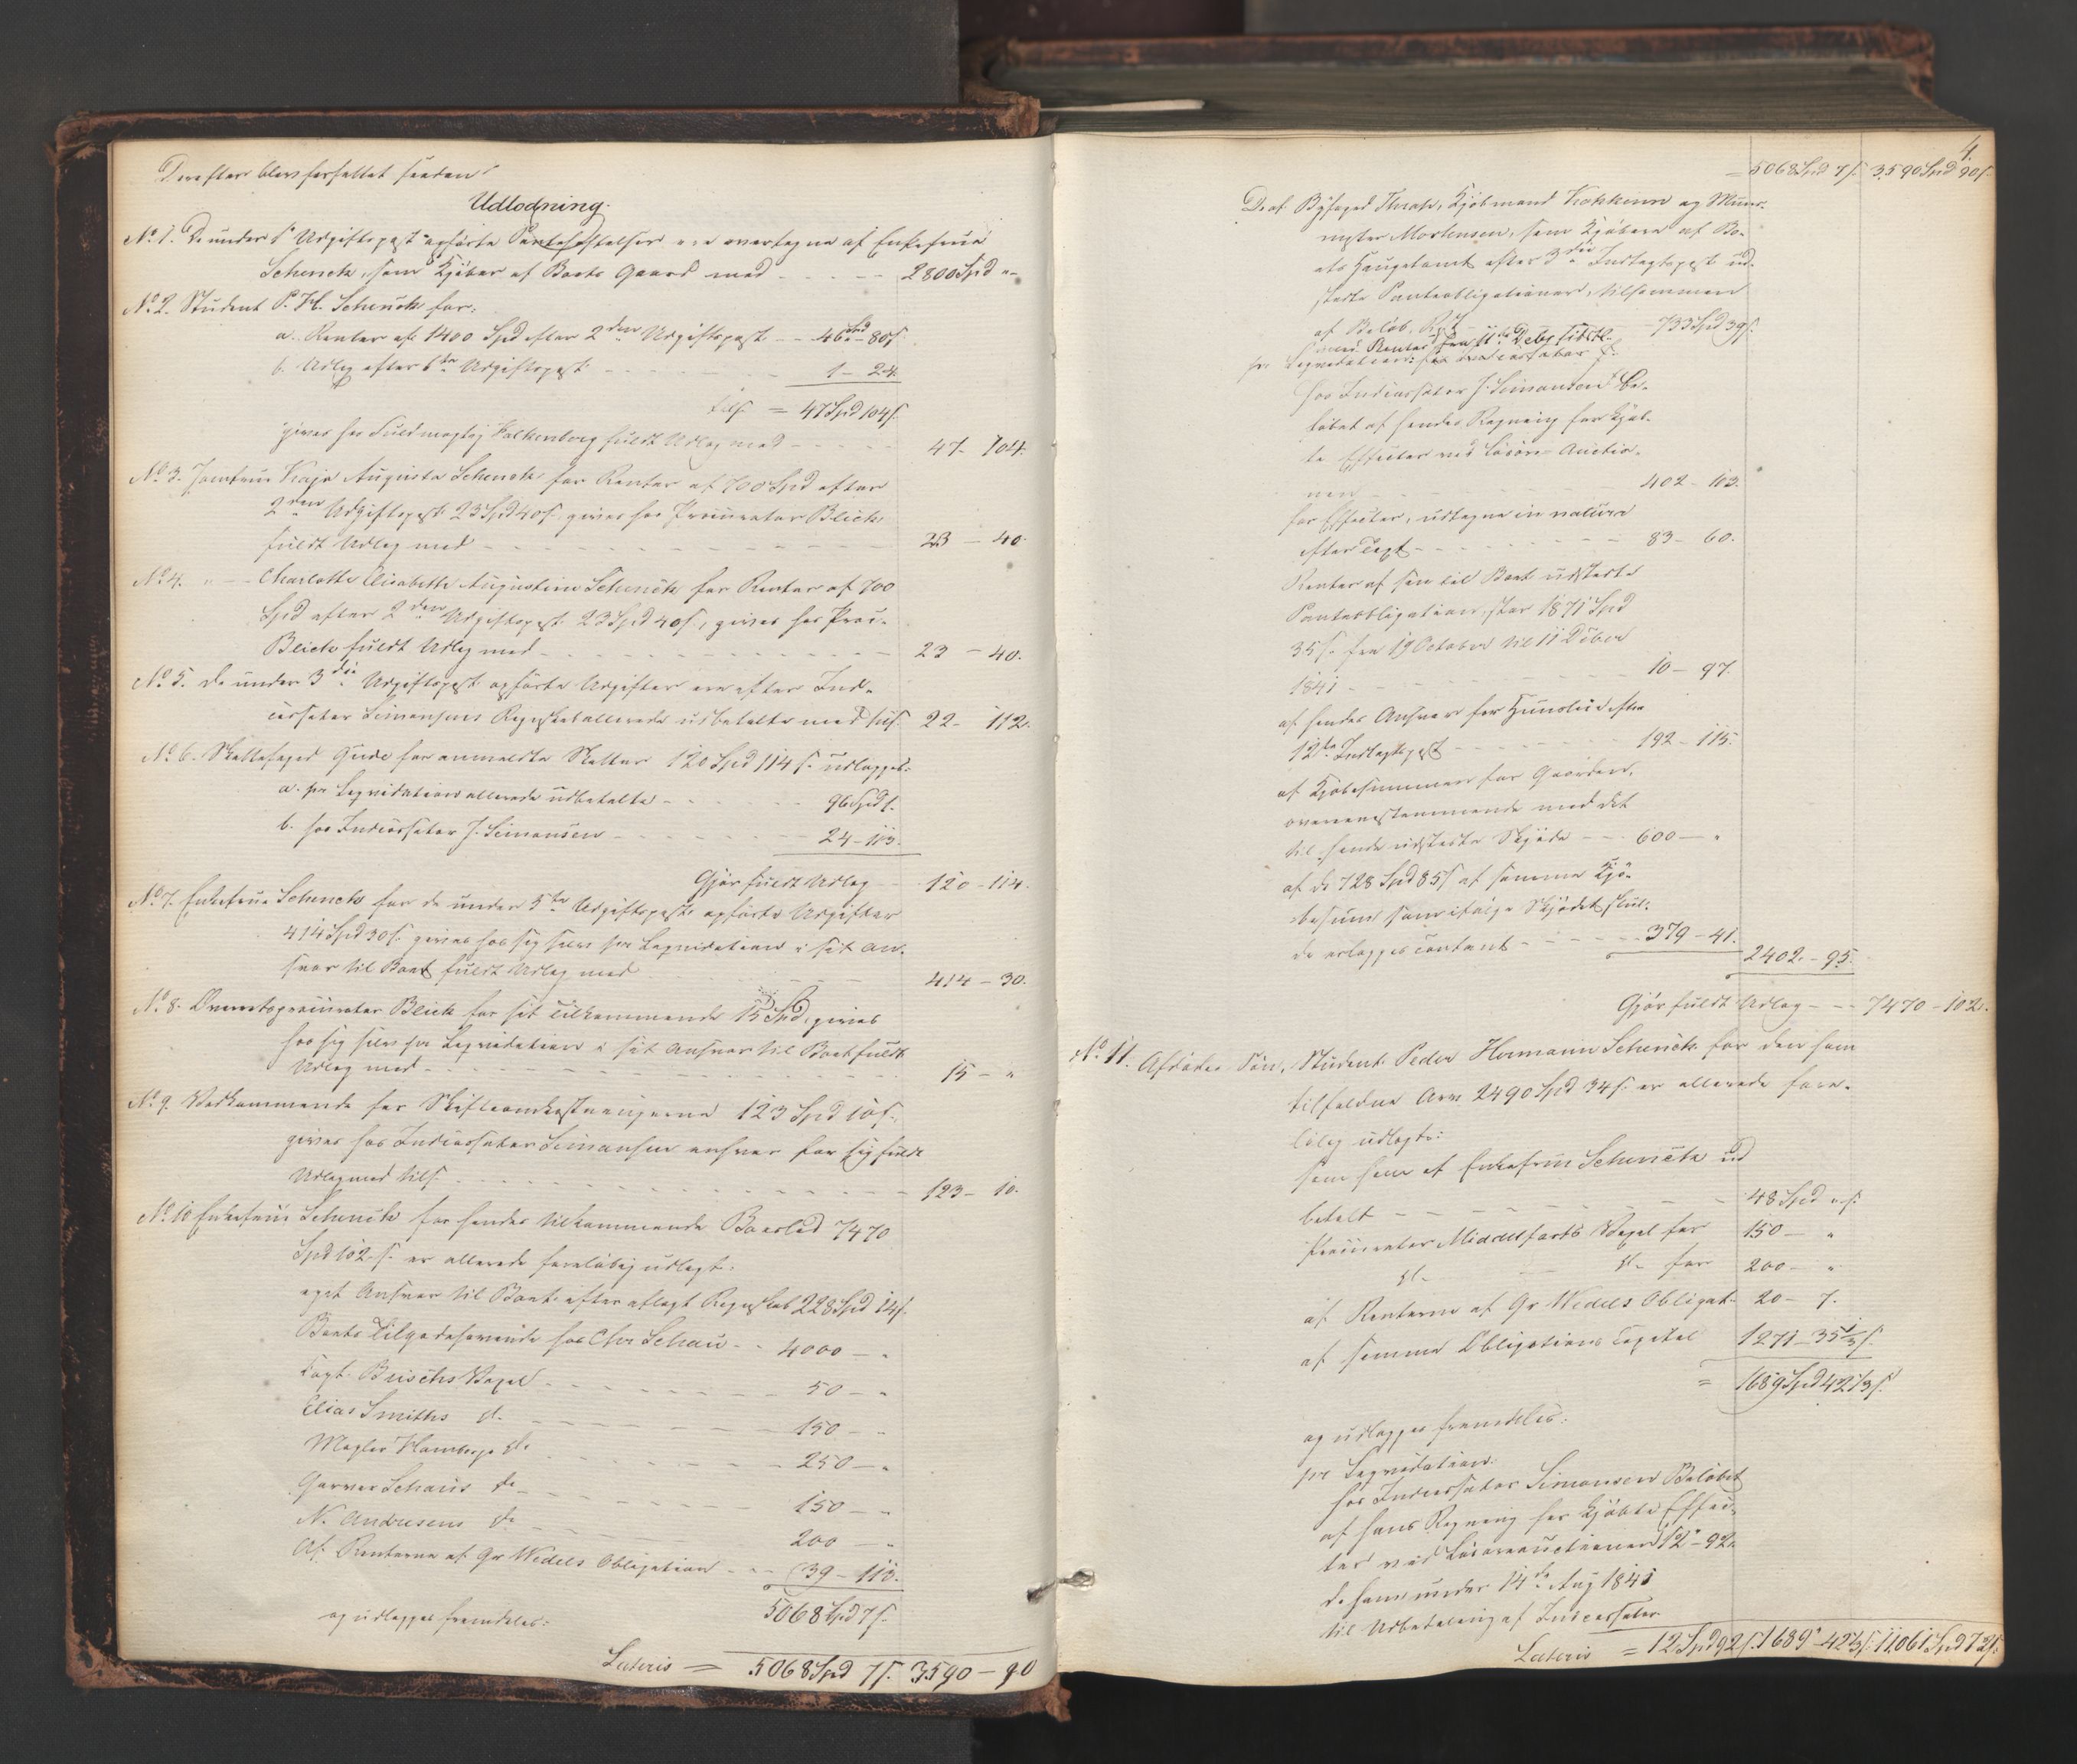 Derefter blev forfattet saadan
Udlodning.
No 1. De under 1ste Udgiftspost opførte Panteheftelser ere overtagne af Enkefrue
Schenck, som Kjøber af Boets Gaard med - - - 2800 Spd "
No 2. Student P. H. Schenck for:
a. Renter af 1400 Spd efter 2den Udgiftspost - - 46 Spd - 80 s.
b. Udlæg efter 6te Udgiftspost - - - 1 - 24.
tils. = 47 Spd 104 s.
gives hos Fuldmægtig Falkenborg fuldt Udlæg med - - - 47 - 104.
No 3. Jomfrue Kaja Augusta Schenck for Renter af 700 Spd efter
2den Udgiftspost 23 Spd 40 s. gives hos Procurator Blich
fuldt Udlæg med - - - 23 - 40.
No 4. " - Charlotte Elisabeth Augustine Schenck for Renter af 700
Spd efter 2den Udgiftspost 23 Spd 40 s, gives hos Proc.
Blich fuldt Udlæg med - - - 23 - 40.
No 5. de under 3die Udgiftspost opførte Udgifter ere efter Ind-
cassator Simonsens Regnskab allerede udbetalte med tils. 22 - 112.
No 6. Skattefoged Gude for anmeldte Skatter 120 Spd 114 s. udlægges:
a. pr Liqvidation allerede udbetalte - - - 96 Spd s.
b. hos Incassator J. Simonsen - - - 24 - 113.
Gjør fuldt Udlæg - - 120 - 114.
No 7. Enkefrue Schenck for de under 5te Udgiftspost opførte Udgifter
414 Spd 30 s. gives hos sig selv pr Liqvidation i sit An-
svar til Boet fuldt Udlæg med - - - 414 - 30.
No 8. Overretsprocurator Blich for sit Tilkommende 15 Spd, gives
hos sig selv pr Liqvidation i sit Ansvar til Boet fuldt
Udlæg med - - - 15 - "
No 9. Vedkommende for Skifteomkostningerne 123 Spd 10 s.
gives hos Incassator Simonsen ansvar for sig fuldt
Udlæg med tils. - - - 123 - 10.
No 10 Enkefrue Schenck for hendes tilkommende Boeslod 7470
Spd 102 s. er allerede foreløbig udlagt:
eget Ansvar til Boet efter aflagt Regnskab 228 Spd 14 s.
Boets Tilgodehavende hos Chr Schau - - 4000 - "
Capt. Buschs Vexel - - - 50 - "
Elias Smiths do - - - 150 - "
Mægler Hambergs do - - - 250 - "
Garver Schaus do - - - 150 - "
N. Andresens do - - - 200 - "
Af Renterne af Gr Wedels Obligation - - 39 - 113.
5068 Spd 7 s.
og udlægges fremdeles:
Lateris = 5068 Spd 7 s. 3590 - 90
4.
= 5068 Spd 7 s. 3590 Spd 90 s.
De af Byfoged Thrate, Kjøbmand Kokkinn og Muur-
mester Mortensen, som Kjøbere af Bo-
ets Haugetomt efter 3die Indtægtspost ud-
stedte Panteobligationer, tilsammen
af Beløb - - - 733 Spd 39 s.
med Renter fra 11te Decbr sidstl.
pr Liqvidation:
hos Incassator J. Simonsen Be-
løbet af hendes Regning for kjøb-
te Effecter ved Løsøre-Auctio-
nen - - - 402 - 113.
for Effecter, udtagne in natura
efter Taxt - - - 83 - 60.
Renter af sin til Boet udstedte
Panteobligation, stor 1871 Spd
35 s. fra 19 October til 11 Dcber
1841 - - - 10 - 97.
af hendes Ansvar for Huusleie efter
12te Indtægtspost - - - 192 - 115.
af Kjøbesummen for Gaarden,
overensstemmende med det
til hende udstedte Skjøde - - - 600 - "
af de 728 Spd 85 s af samme Kjø-
besum, som ifølge Skjødet skul-
de erlægges contant - - - 379 - 41.
2402 - 95.
Gjør fuldt Udlæg - - 7470 - 102.
No 11. Afdødes Søn, Student Peder Hermann Schenck for den ham
tilfaldne Arv 2490 Spd 34 s. er allerede fore-
løbig udlagt:
som ham af Enkefrue Schenck ud
betalt - - - 48 Spd " s.
Procurator Middelfarts Vexel for 150 - "
do - do for 200 - "
af Renterne af Gr Wedels Obligat: 20 - 7.
af samme Obligations Capital 1271 - 35 1/3 s.
= 1689 Spd 42 1/3 s.
og udlægges fremdeles:
pr Liqvidation:
hos Incassator Simonsen Beløbet
af hans Regning for kjøbte Effec-
ter ved Løsøreauctionen 12 - 92
de ham under 14de Aug 1841
til Udbetaling af Incassator
Lateris = 12 Spd 92 s. 1689 - 42 1/3 s. 11,061 Spd 72 s.